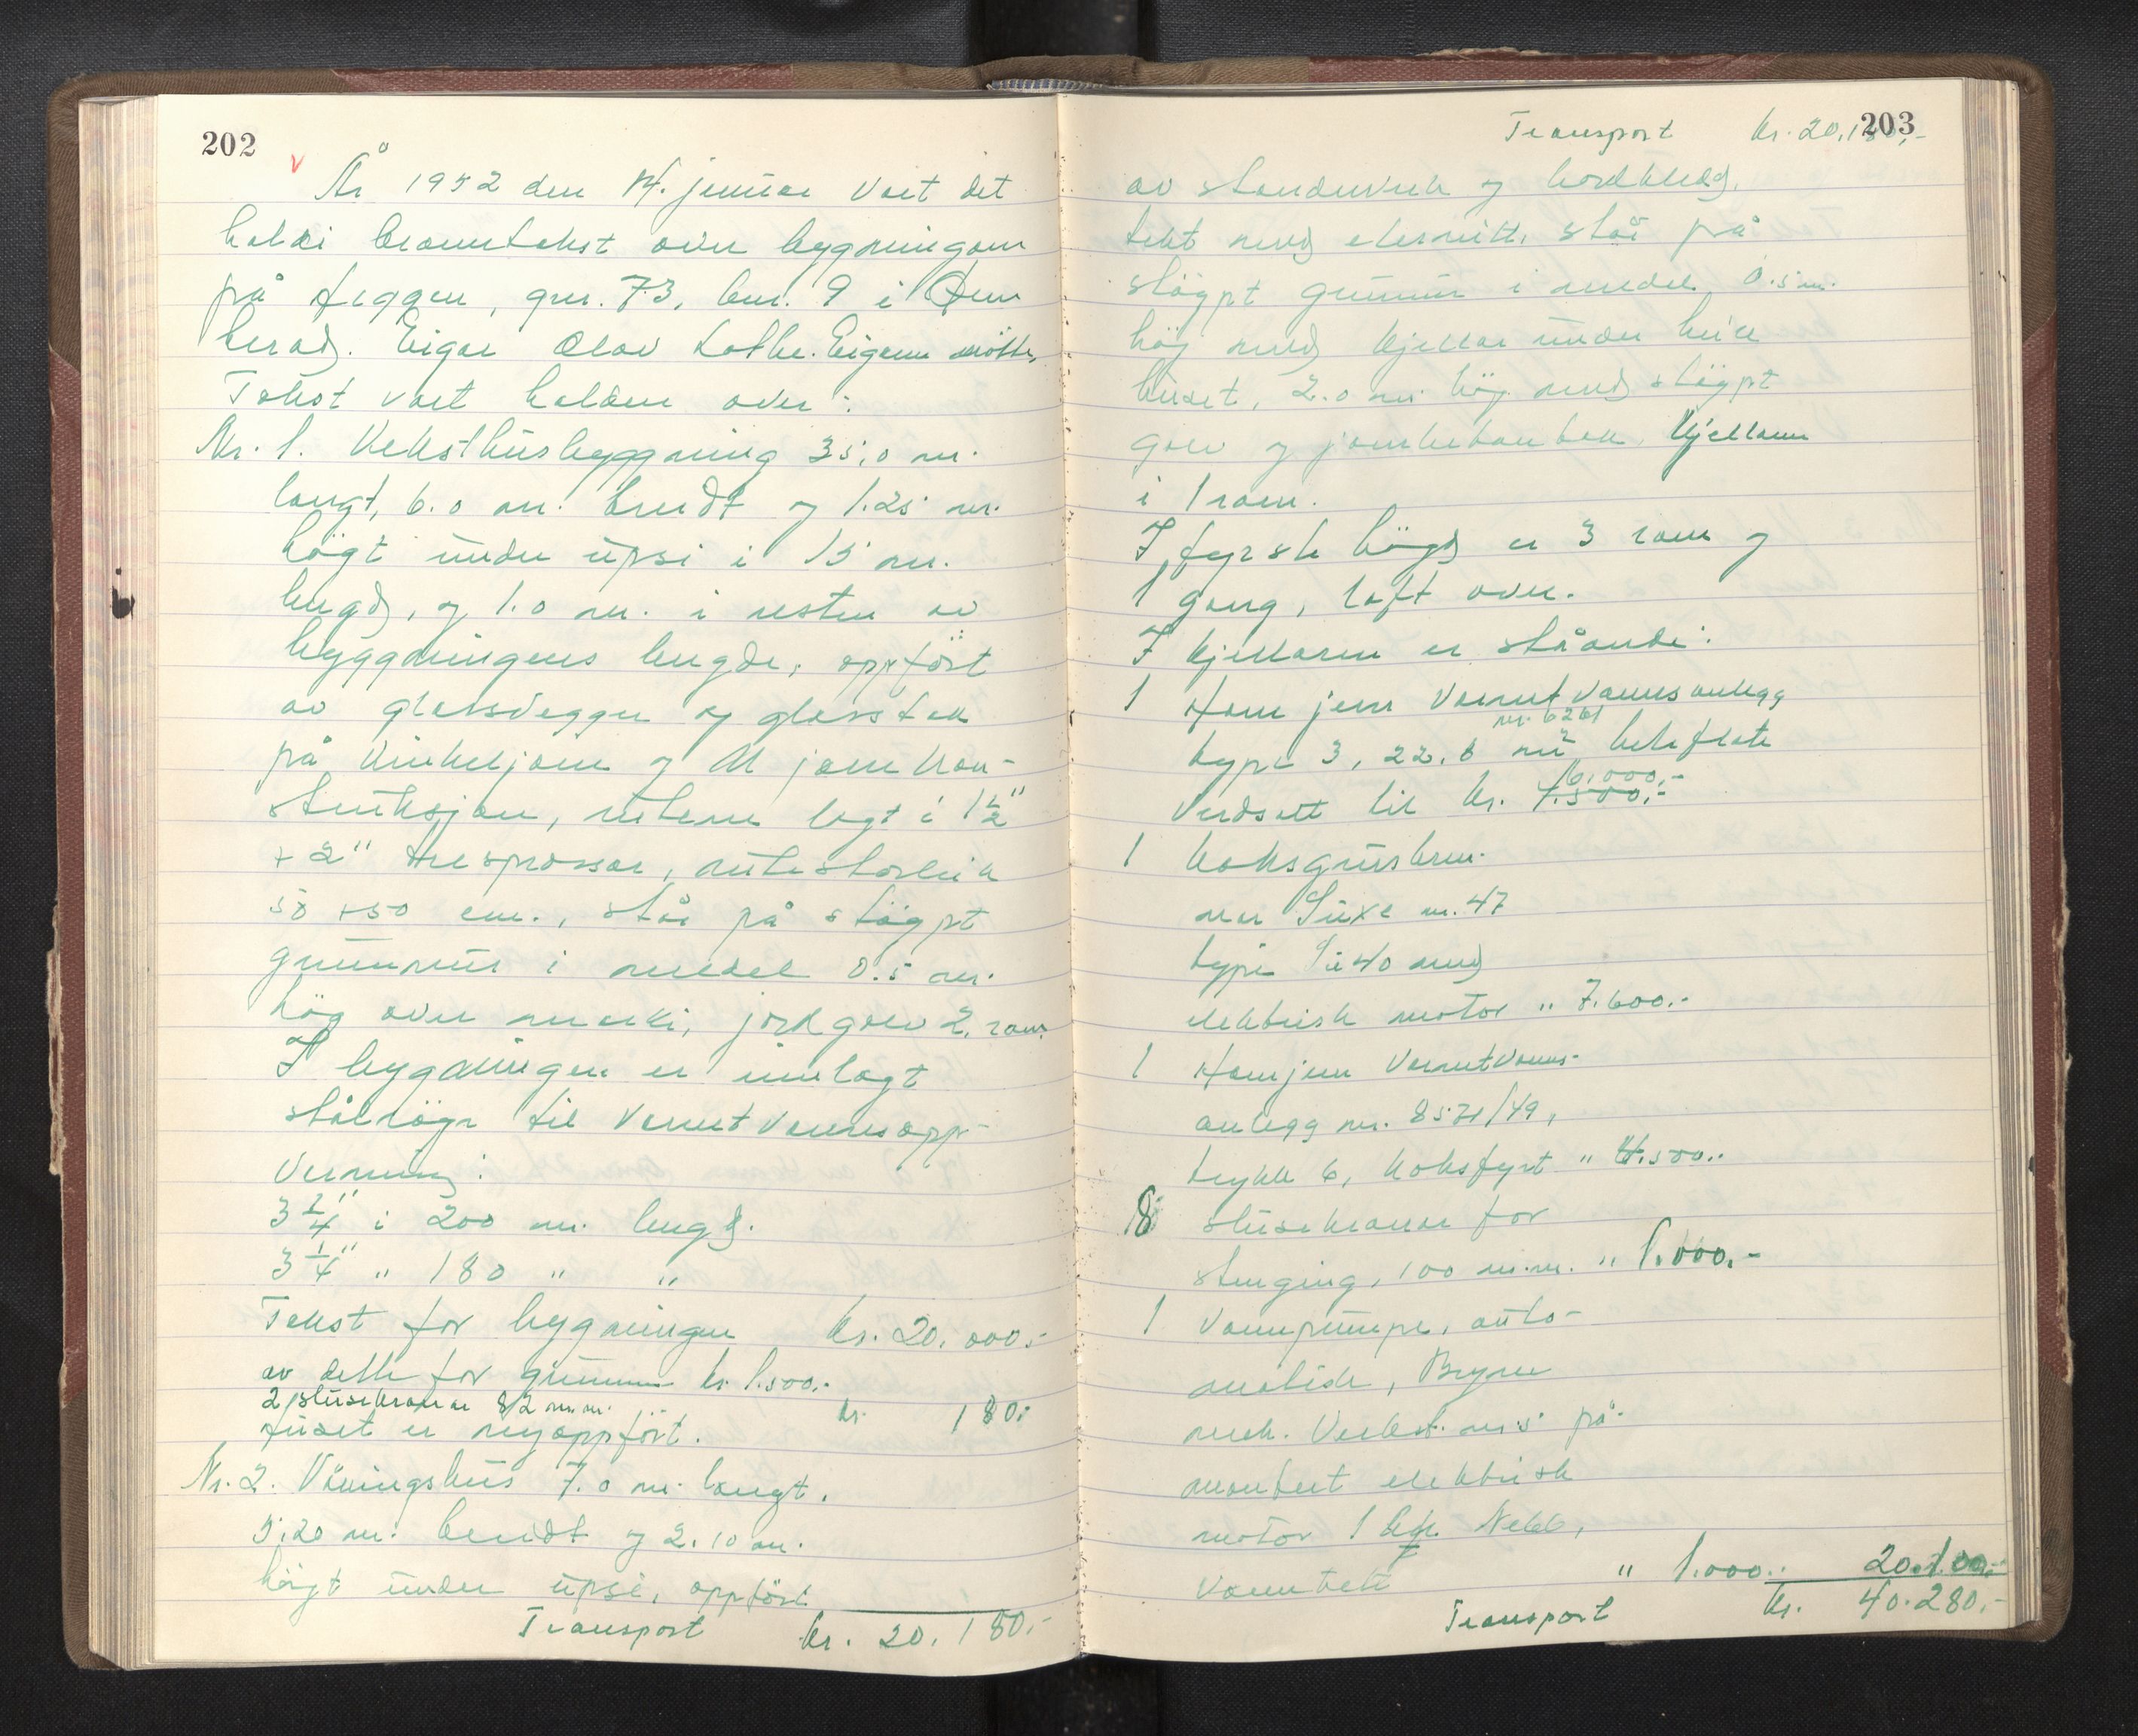 202
År 1952 den 14. januar vart det
haldi branntakst over bygningane
på Heggen, gnr. 73, bnr. 9 i
herad. Eigar Olav Lothe. Eigaren møtte.
Takst vart halden over:
Nr. 1. Veksthusbyggning 35,0 m.
langt, 6.0 m. breidt og 1.25 m.
högt under upsi i 15 m.
lengd, og 1.0 m. i resten av
byggningens lengde, oppfört
av glassvegger og glasstak
på vinkeljarn og jarnkon-
struksjon, rutene lagt i 1½"
+ 2" tresprossar, rutestorleik
50 + 50 cm., står på stöypt
grunnmur i medel 0.5 m.
hög over marki, jordgolv 2. rom.
I bygningen er innlagt
stålröyr til varmtvannsopp-
varming:
3¼" i 200 m. lengd.
3¼" " 180 " "
Takst for bygningen kr. 20.000.-
av dette for grunnmur kr. 1.500.-
2 slusekranar 82 m.m. kr. 180.-
Huset er nyoppfört.
Nr. 2. Våningshus 7.0 m. langt.
5.20 m. breidt og 2.10 m.
högt under upsi, oppfört
Transport kr. 20.180.-
203
Transport kr. 20.180,-
av standarverk og bordkledd,
tekt med eternitt, står på
stöypt grunnmur i medel 0.5 m.
hög med kjellar under heile
huset, 2.0 m. hög med stöypt
golv og jarnbetontak. Kjellaren
i 1 rom.
I fyrste högd er 3 rom og
1 gang, loft over.
I kjellaren er ståande:
1 Hamjern varmtvannsanlegg
nr. 6261
type 3, 22.8 m² heteflate
6.000.-
verdsett til kr. 7.500.-
1 koksgrusbren-
nar Suxe nr. 47
type Su 40 med
elektrisk motor " 7.600.-
1 Hamjern varmtvanns-
anlegg nr. 8571/49,
trykk 6, koksfyrt " 4.500..
8 slusekranar for
stenging, 100 m.m. " 1.000.-
1 vannpumpe, auto-
matisk, Bryne
mek. Verkst. m. 5 på-
montert elektrisk
motor 1 hk. Nebb,
vanntett " 1.000.. 20.100.-
Transport kr. 40.280.-